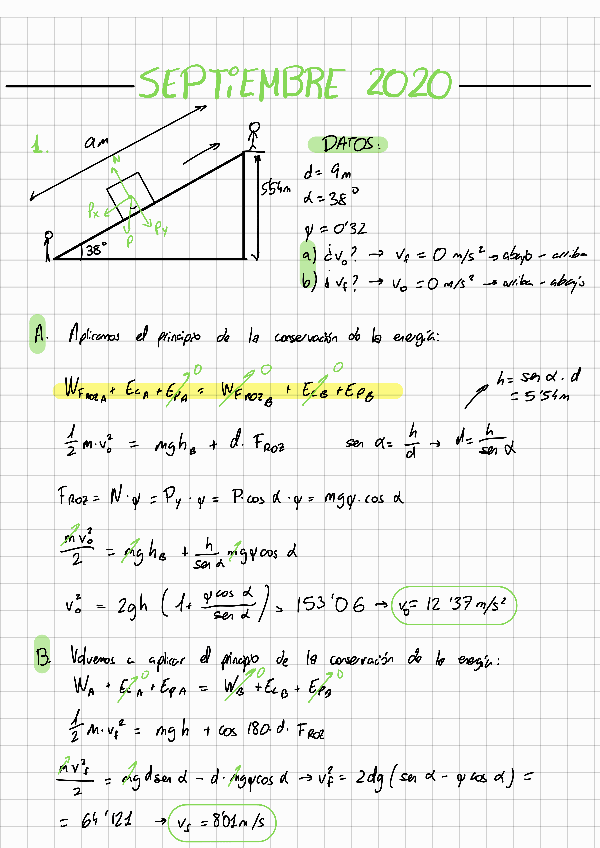 SEPTiEMBRE 2020
1.
9m
N
Px
Py
P
38°
5'54m
DATOS:
d = 9m
α = 38°
φ = 0'32
a) ¿v₀? → v_f = 0 m/s² → abajo - arriba
b) ¿v_f? → v₀ = 0 m/s² → arriba - abajo
A. Aplicamos el principio de la conservación de la energía:
W_FROZ_A + E_C_A + E_P_A = W_FROZ_B + E_C_B + E_P_B
0 0 0
h = sen α · d
= 5'54m
1/2 m·v₀² = mgh_B + d·F_ROZ
sen α = h/d → d = h/sen α
F_ROZ = N·φ = P_y·φ = P·cos α·φ = mgφ·cos α
mv₀²/2 = mgh_B + h/sen α mgφcos α
v₀² = 2gh (1 + φcos α/sen α) = 153'06 → v₀ = 12'37 m/s²
B. Volvemos a aplicar el principio de la conservación de la energía:
W_A + E_C_A + E_P_A = W_B + E_C_B + E_P_B
0 0 0
1/2 m·v_f² = mgh + cos 180·d·F_ROZ
mv_f²/2 = mgdsen α - d·mgφcos α → v_f² = 2dg (sen α - φcos α) =
= 64'121 → v_f = 8'01 m/s